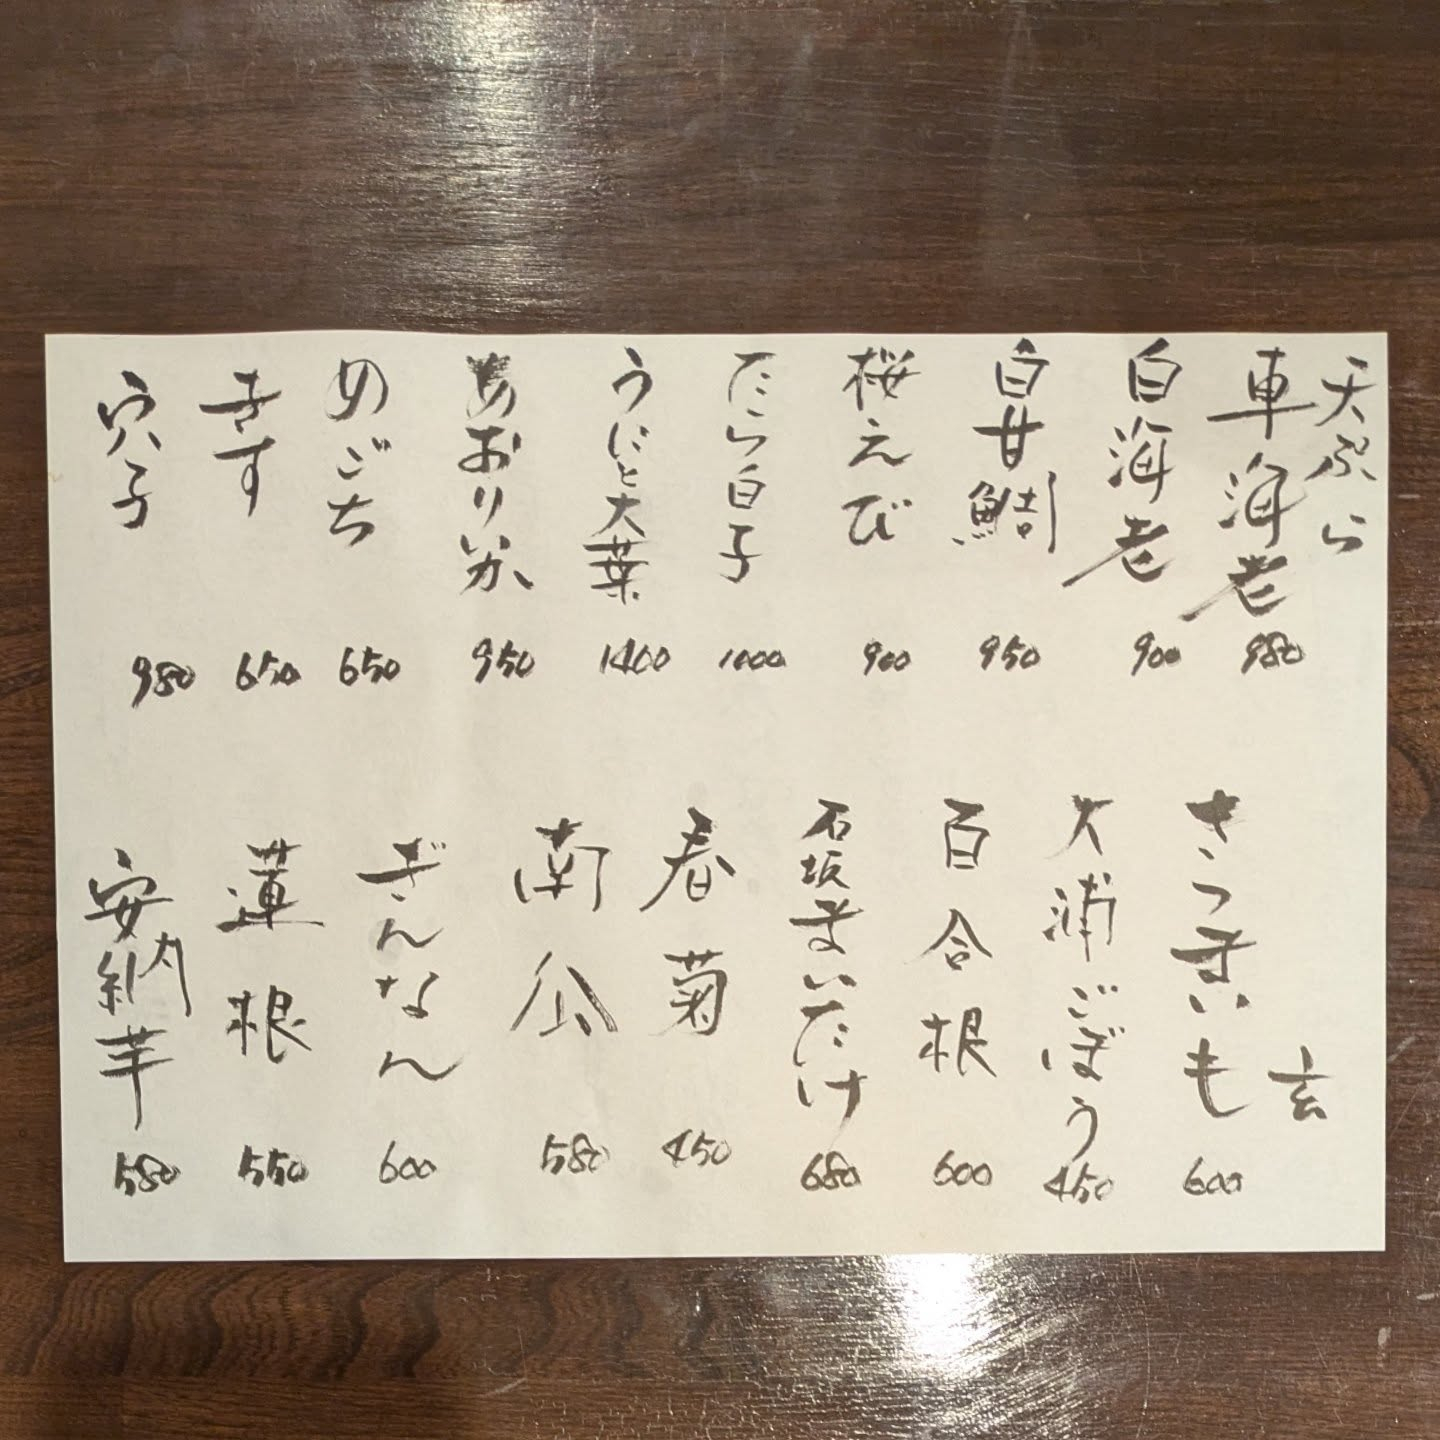 天ぷら
車海老 980
白海老 900
白甘鯛 950
桜えび 900
たら白子 1000
うにと大葉 1400
あおりいか 950
めごち 650
きす 650
穴子 980
玄
さつまいも 600
大浦ごぼう 450
百合根 600
石坂まいたけ 680
春菊 450
南瓜 580
ぎんなん 600
蓮根 550
安納芋 580